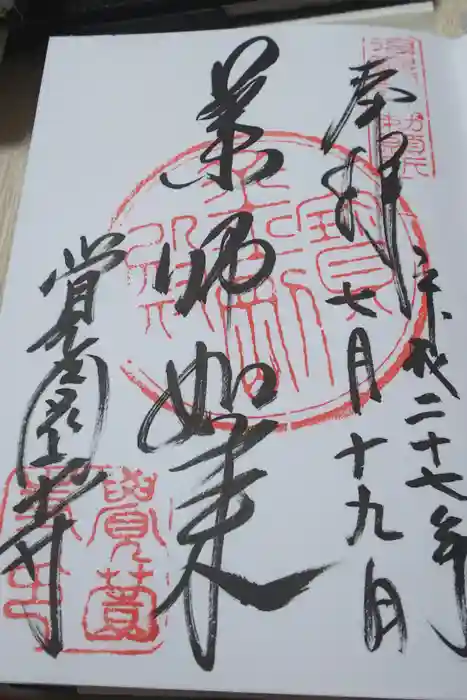 奉拝
平成二十七年
七月十九日
薬師如来
覚薗寺
覺薗